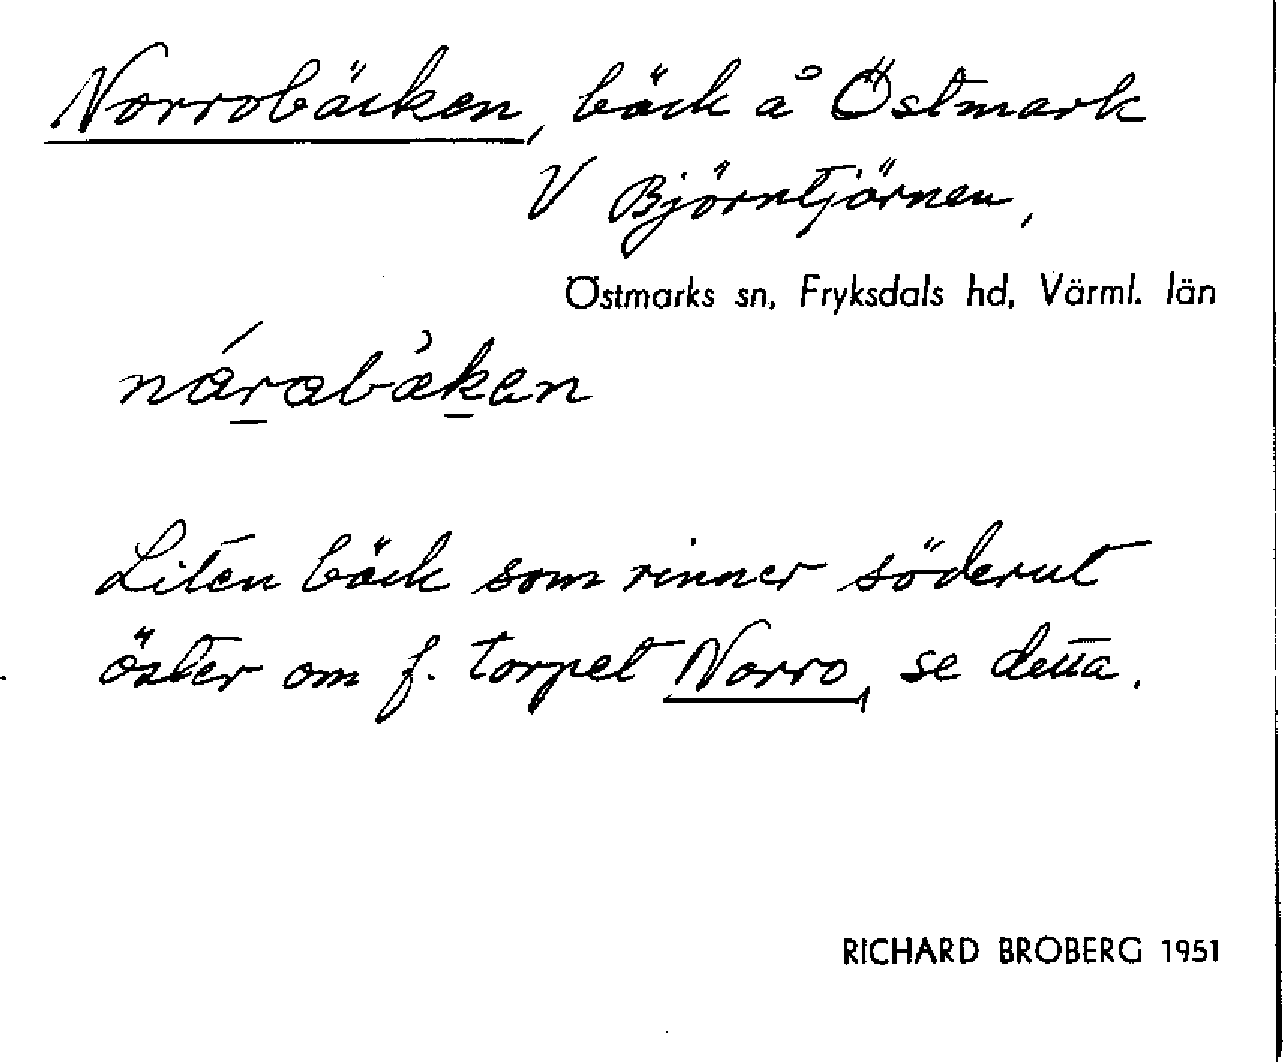 Norrobäcken, bäck å Östmark
V Björntjärnen,
Östmarks sn, Fryksdals hd, Värml. län
Liten bäck som rinner söderut
öster om f. torpet Norro, se detta.
RICHARD BROBERG 1951